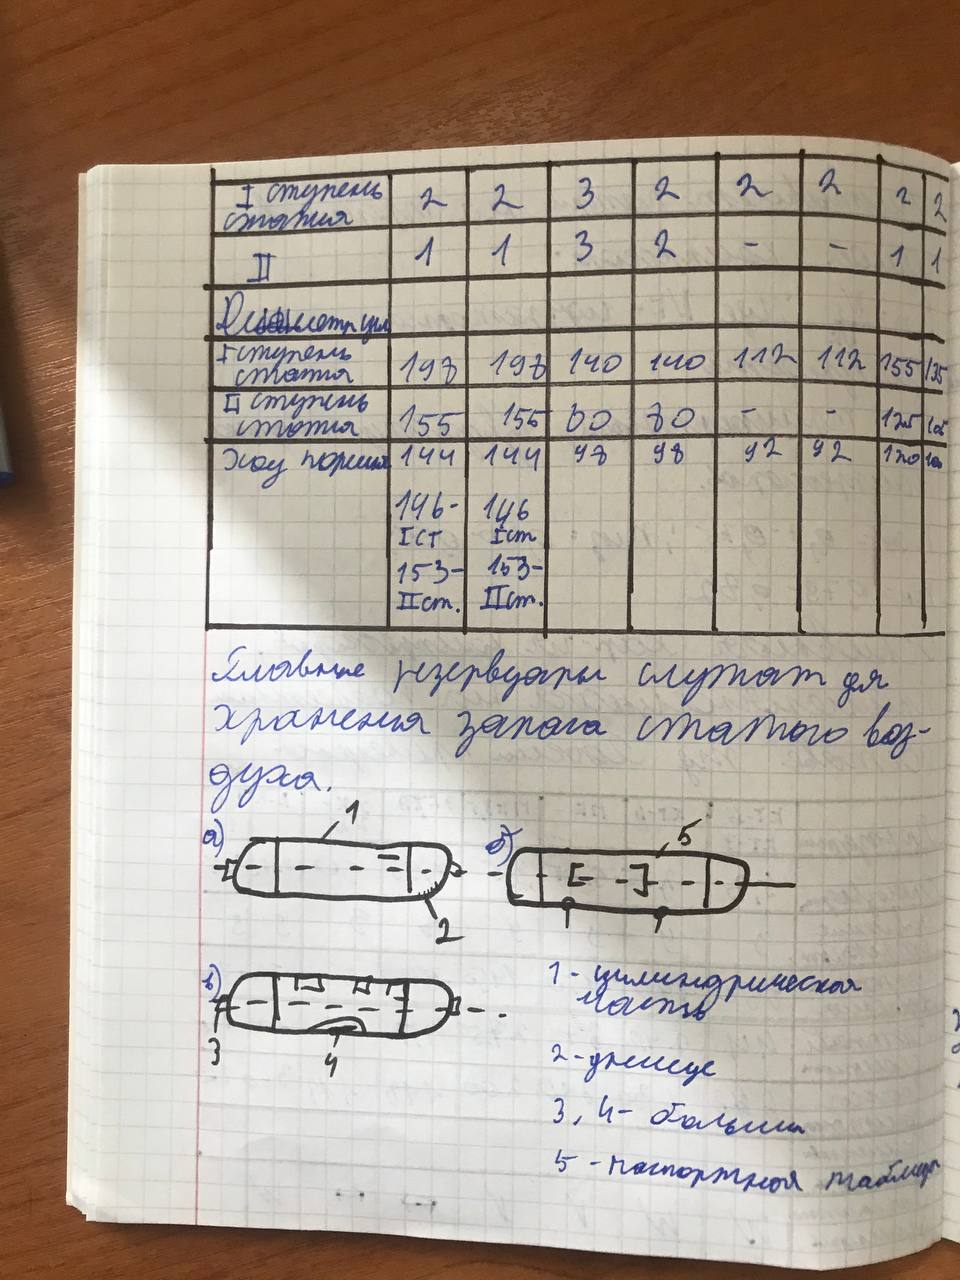 I ступень сжатия 2 2 3 2 2 2 2 2
II 1 1 3 2 - - 1 1
I ступень сжатия 198 198 140 140 112 112 155 135
II ступень сжатия 155 155 80 80 - - 125 105
Ход поршня 144 144 98 98 92 92 120
146- 146
I ст I ст
153- 153-
II ст. II ст.
Главные резервуары служат для
хранения запаса сжатого воз-
духа.
а) 1 2
б) 5
в) 3 4
1 - цилиндрическая
часть
2 - днище
3, 4 -
5 - паспортная